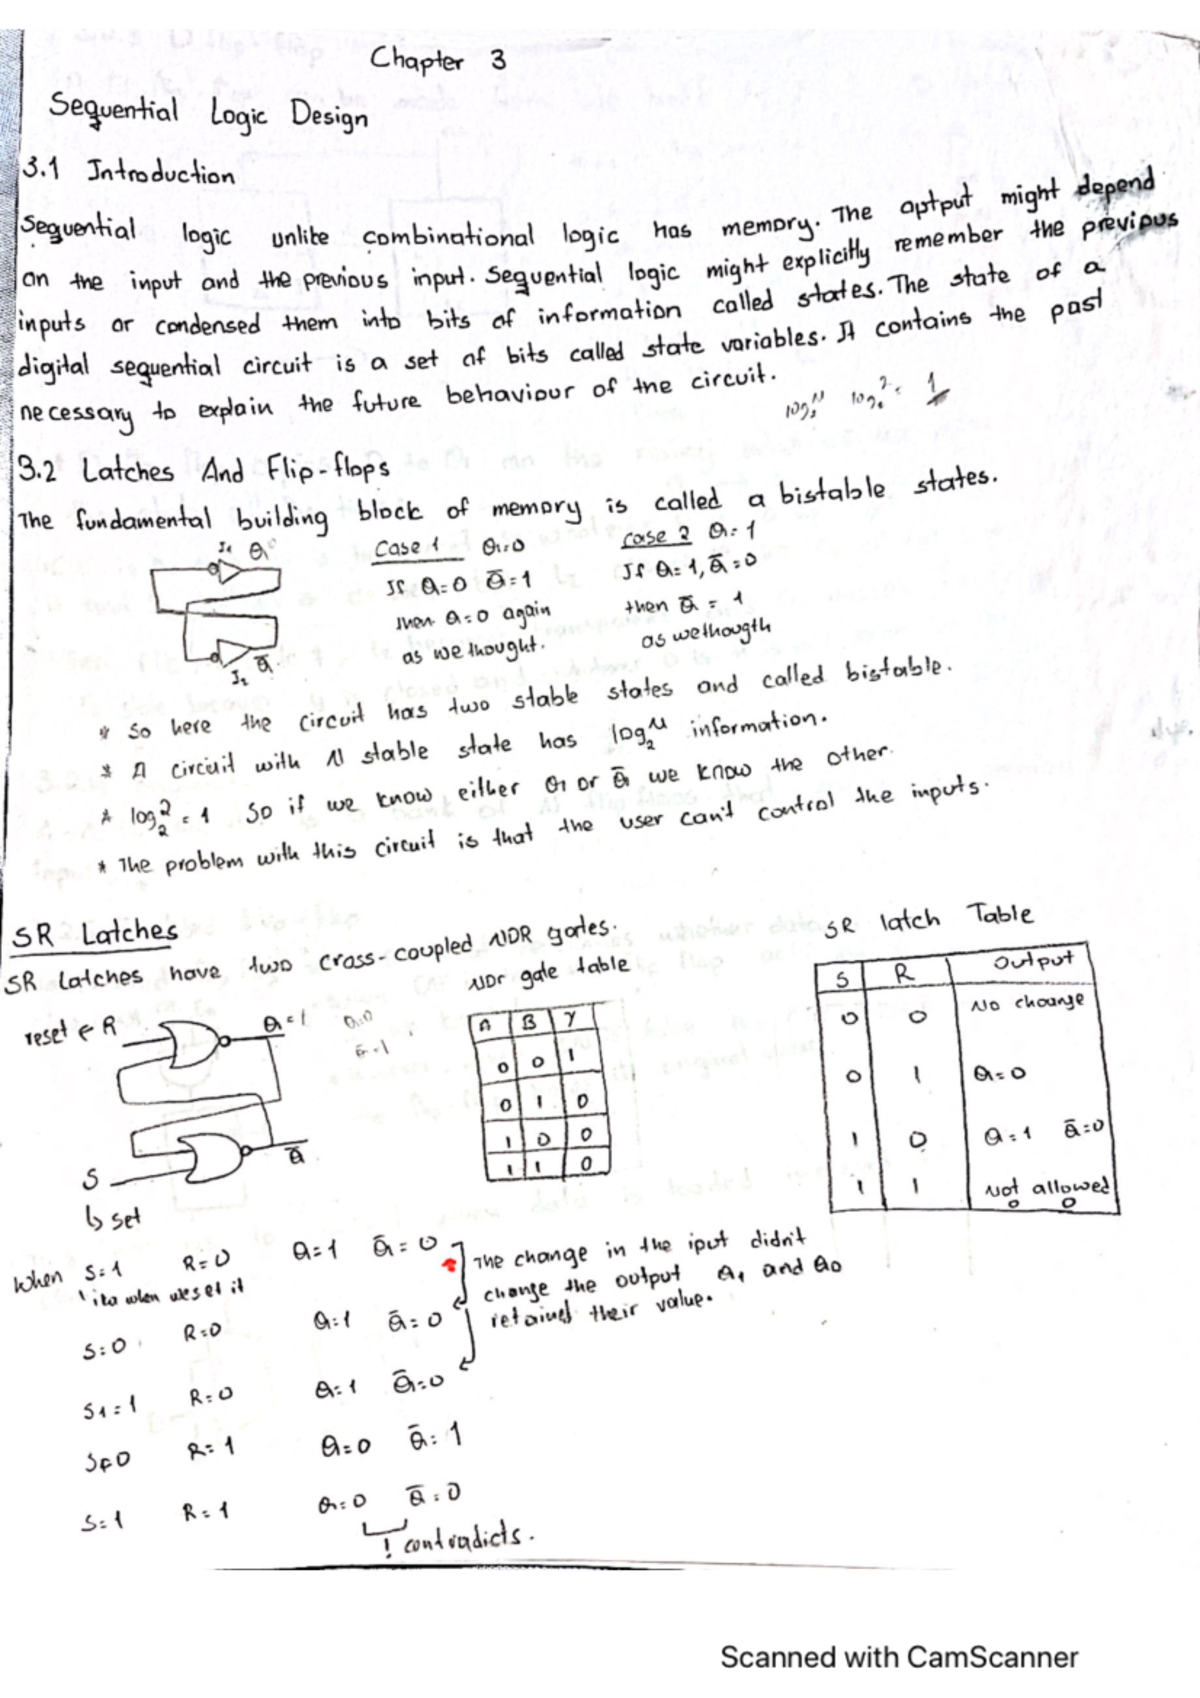 Chapter 3
Sequential Logic Design
3.1 Introduction
Sequential logic unlike combinational logic has memory. The output might depend
on the input and the previous input. Sequential logic might explicitly remember the previous
inputs or condensed them into bits of information called states. The state of a
digital sequential circuit is a set of bits called state variables. It contains the past
necessary to explain the future behaviour of the circuit.
3.2 Latches And Flip-flops
The fundamental building block of memory is called a bistable states.
I1 Q
I2 Q̅
Case 1 Q=0
If Q=0 Q̅=1
then Q=0 again
as we thought.
case 2 Q=1
If Q=1, Q̅=0
then Q̅ = 1
as wethougth
* So here the circuit has two stable states and called bistable.
* A circuit with N stable state has log₂ᴺ information.
* log₂² = 1 So if we know either Q or Q̅ we know the other.
* The problem with this circuit is that the user can't control the inputs.
SR Latches
SR Latches have two cross-coupled NOR gates.
reset ← R
Q=1
Q=0
Q̅=1
Q̅
S
↳ set
NOr gate table
A B Y
0 0 1
0 1 0
1 0 0
1 1 0
SR latch Table
S R Output
0 0 No change
0 1 Q=0
1 0 Q=1 Q̅=0
1 1 Not allowed
0 0
When S=1 R=0 Q=1 Q̅=0
when we set it
S=0 R=0 Q=1 Q̅=0
The change in the iput didn't
change the output Q1 and Q0
retained their value.
S1=1 R=0 Q=1 Q̅=0
S=0 R=1 Q=0 Q̅=1
S=1 R=1 Q=0 Q̅=0
! contradicts.
Scanned with CamScanner